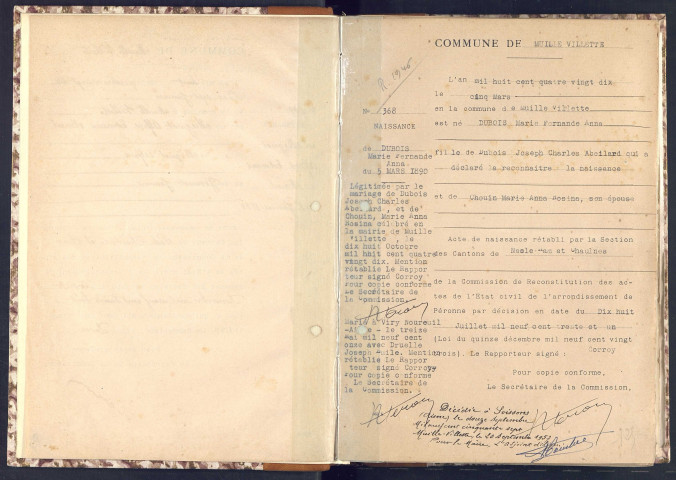 R 1946
COMMUNE DE MUILLE VILLETTE
N° 368
NAISSANCE
de DUBOIS
Marie Fernande
Anna
du 5 MARS 1890
Légitimée par le
mariage de Dubois
Joseph Charles
Abeilard, et de
Chouin, Marie Anna
Rosina célébré en
la mairie de Muille
Villette, le
dix huit Octobre
mil huit cent quatre
vingt dix. Mention
rétablie Le Rappor
teur signé Corroy
Pour copie conforme
Le Secrétaire de
la Commission.
Marié à Viry Noureuil
-Aisne- le treize
Mai mil neuf cent
onze avec Druelle
Joseph Emile. Mention
rétablie Le Rappor
teur signé Corroy
Pour copie conforme
Le Secrétaire de
la Commission.
L'an mil huit cent quatre vingt dix
le cinq Mars
en la commune de Muille Villette
est né DUBOIS Marie Fernande Anna
fille de Dubois Joseph Charles Abeilard qui a
déclaré la reconnaître la naissance
et de Chouin Marie Anna Rosina, son épouse
Acte de naissance rétabli par la Section
des Cantons de Nesle Ham et Chaulnes
de la Commission de Reconstitution des ac-
tes de l'Etat civil de l'arrondissement de
Péronne par décision en date du Dix huit
Juillet mil neuf cent trente et un
(Loi du quinze décembre mil neuf cent vingt
trois). Le Rapporteur signé : Corroy
Pour copie conforme,
Le Secrétaire de la Commission,
Décédée à Soissons
(Aisne) le douze Septembre
Mil neuf cent cinquante sept
Muille-Villette, le 20 Septembre 1957
Pour le Maire, L'adjoint délégué